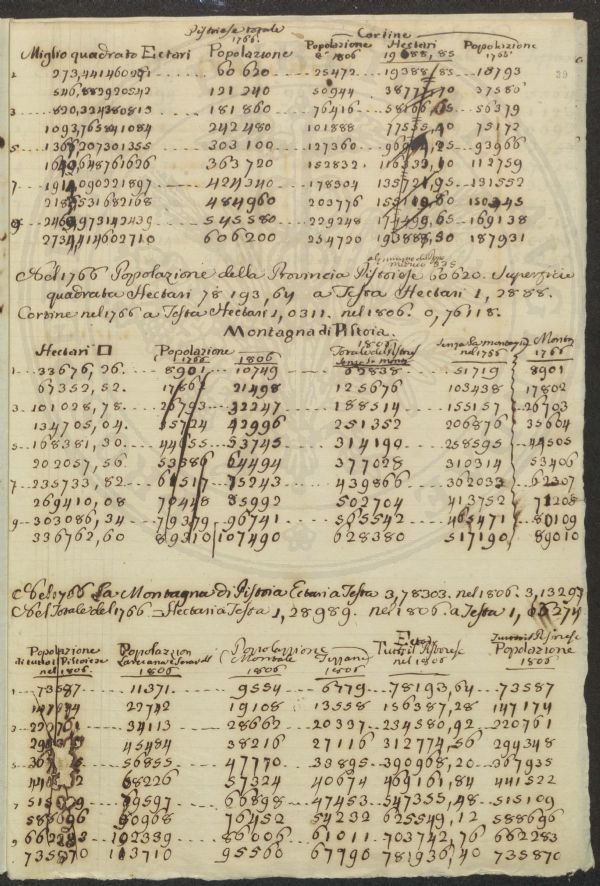 Pistoiese totale Cortine
1766.
Miglio quadrato Ectari Popolazione Popolazione Hectari Popolazione
1806 19388,85 1766
1 273,441460271 60620 25472 19388,85 18793
546,882920542 121240 50944 38777,70 37586
3 820,324380813 181860 76416 58166,55 56379
1093,765841084 242480 101888 77555,40 75172
5 1367,207301355 303100 127360 96944,25 93966
1640,648761626 363720 152832 116333,10 112759
7 1914,090221897 424340 178304 135721,95 131552
2187,531682168 484960 203776 155110,80 150345
9 2460,973142439 545580 229248 174499,65 169138
2734,414602710 606200 254720 193888,50 187931
Nel 1766 Popolazione della Provincia Pistoiese 60620. Superficie
quadrata Hectari 78193,64 a Testa Hectari 1,2888.
Cortine nel 1766 a Testa Hectari 1,0311. nel 1806. 0,76118.
Montagna di Pistoia.
Hectari □ Popolazione 1806 Totale del Pistoiese Senza la montagna Montagna
1766 senza la mont. nel 1766 1766
1 33676,26. 8901 10749 62838 51719 8901
67352,52. 17862 21498 125676 103438 17802
3 101028,78. 26793 32247 188514 155157 26703
134705,04. 35724 42996 251352 206876 35604
5 168381,30. 44655 53745 314190 258595 44505
202057,56. 53586 64494 377028 310314 53406
7 235733,82 62517 75243 439866 362033 62307
269410,08 71448 85992 502704 413752 71208
9 303086,34 79379 96741 565542 465471 80109
336762,60 89310 107490 628380 517190 89010
Nel 1766 La Montagna di Pistoia Ectari a Testa 3,78303. nel 1806. 3,13297
Nel Totale del 1766 Hectari a Testa 1,28989. nel 1806. a Testa 1,06374
Popolazione Popolazion Popolazione Ectari Tutto il Pistoiese
di tutto il Pistoiese Montale Tizzana Tutto il Pistoiese Popolazione
nel 1806 1806 1806 1806 nel 1806 1806
1 73587 11371. 9554 6779 78193,64 73587
147174 22742 19108 13558 156387,28 147174
3 220761 34113 28662 20337 234580,92 220761
294348 45484 38216 27116 312774,56 294348
5 367935 56855 47770 33895 390968,20 367935
441522 68226 57324 40674 469161,84 441522
7 515109 79597 66898 47453 547355,48 515109
588696 90968 76452 54232 625549,12 588696
9 662283 102339 86006 61011 703742,76 662283
735870 113710 95560 67790 781936,40 735870